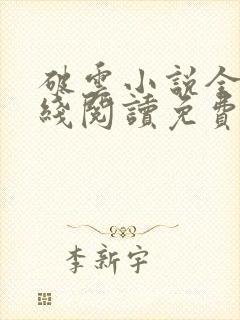 破雲小說全
綫閱讀免費
李新宇